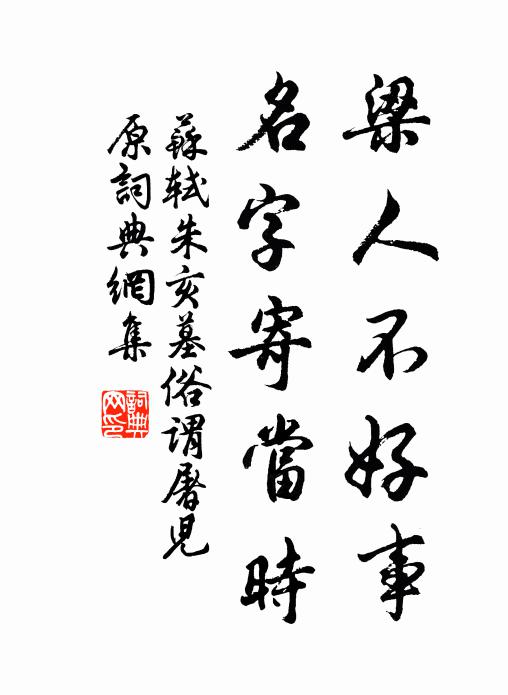 梁人不好事
名字寄當時
蘇軾朱亥墓俗謂屠兒
原詞典網集
詞典網印